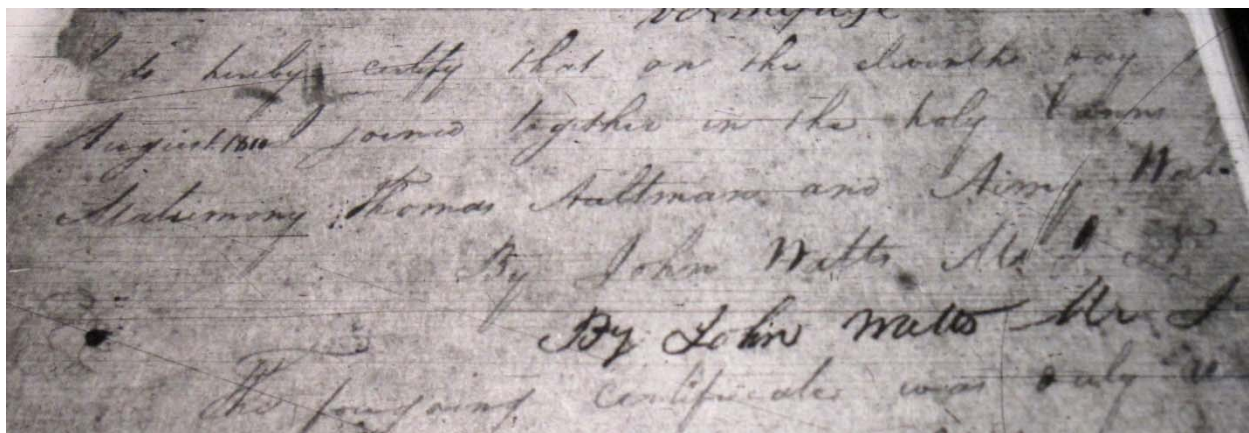 I do hereby certify that on the eleventh day
August 1810 joined together in the holy
Matrimony Thomas Aaltman and Aimy
By John Watts
By John Watts
The forgoing certificate was duly